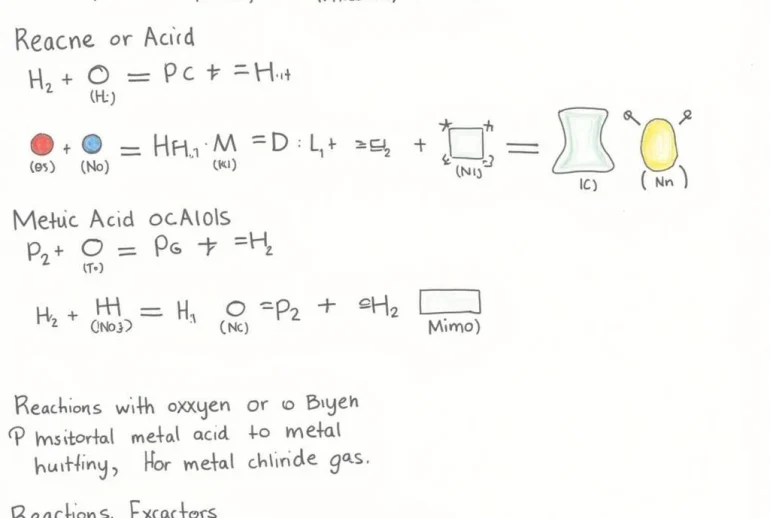 Reacne or Acird
H₂ + O = Pc + = H..+
(H:)
+ = HH.₁ · M = D : L₁ + + =
(es) (No) (KI) (NIJ) IC) (Nn)
Metuic Acid ocAlols
P₂ + O = PG + = H₂
(T•)
H₂ + = H₁ O = P₂ + H₂
(No3) (Nc) Mimo)
Reachions with oxxyen or o Bıyeh
P msitortal metal acid to metal
huitfiny, Hor metal chliride gas.
Reactions, Excactors